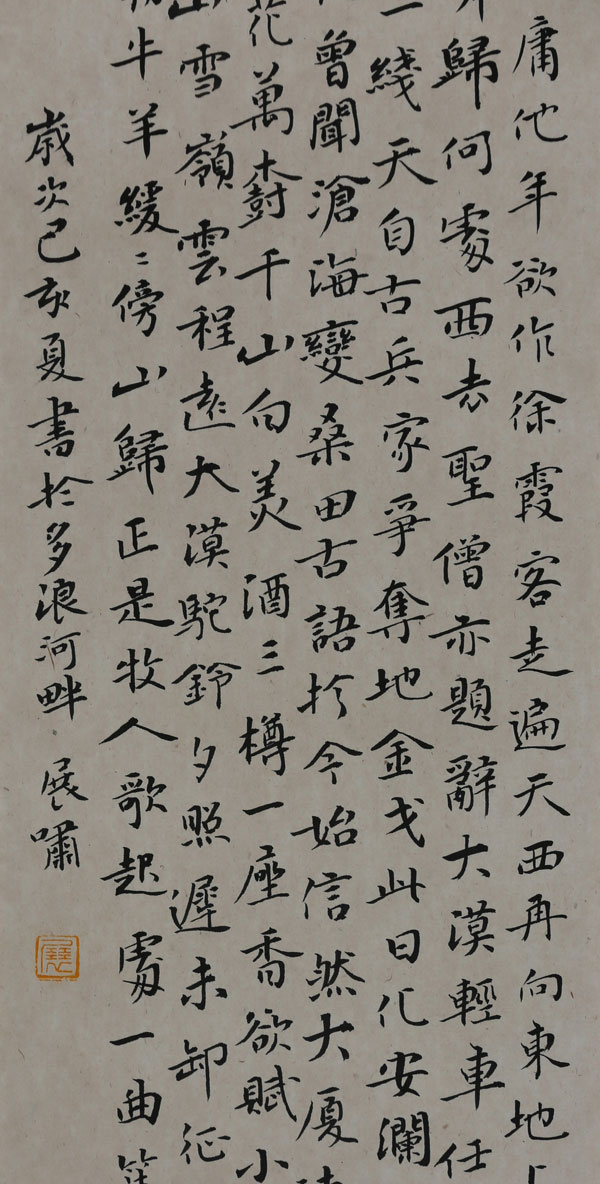 庸他年欲作徐霞客走遍天西再向東地上
歸何處西去聖僧亦題辭大漠輕車任
一綫天自古兵家爭奪地金戈此日化安瀾
曾聞滄海變桑田古語於今始信然大廈
花萬樹千山向美酒三樽一座香欲賦小
山雪嶺雲程遠大漠駝鈴夕照遲未卸征
牛羊緩緩傍山歸正是牧人歌起處一曲
歲次己亥夏書於多浪河畔 展嘯